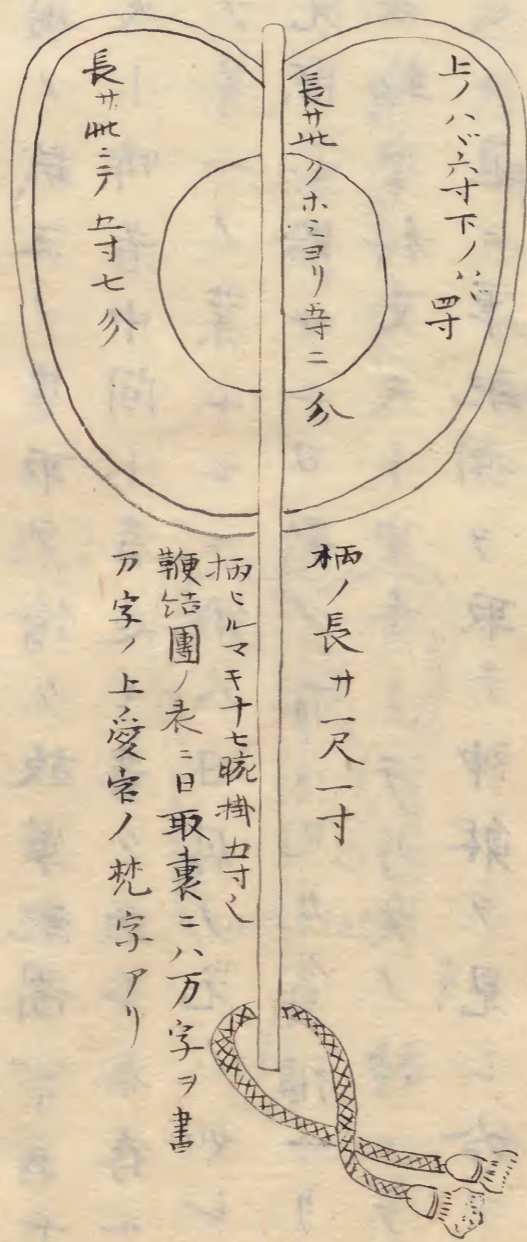 上ノハヾ六寸下ノハヾ四寸
長サ此クホミヨリ五寸二分
長サ此ニテ五寸七分
柄ノ長サ一尺一寸
柄ヒルマキ十七腕掛五寸
鞭団ノ表ニ日取裏ニハ万字ヲ書
万字ノ上ノ愛宕ノ梵字アリ